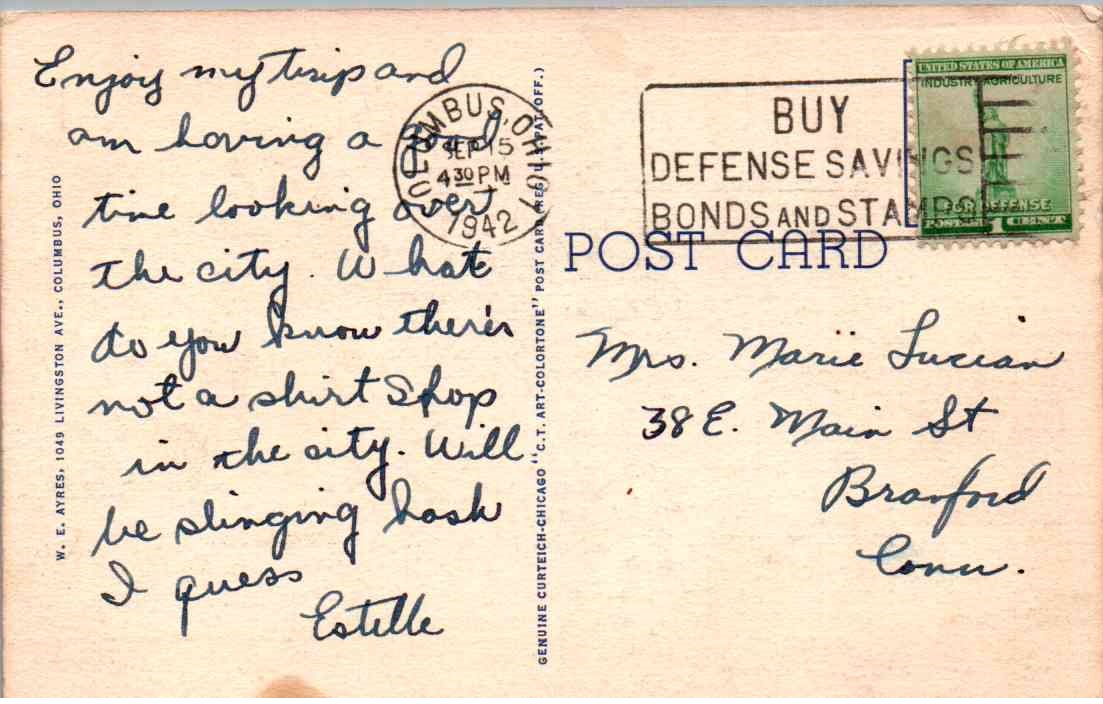 Enjoy my trip and
am having a good
time looking over
the city. What
do you know there's
not a shirt Shop
in the city. Will
be slinging hash
I guess
Estelle
W. E. AYRES, 1049 LIVINGSTON AVE., COLUMBUS, OHIO
COLUMBUS, OHIO
SEP 15
4 30 PM
1942
GENUINE CURTEICH-CHICAGO "C.T. ART-COLORTONE" POST CARD (REG. U.S. PAT. OFF.)
BUY
DEFENSE SAVINGS
BONDS AND STAMPS
UNITED STATES OF AMERICA
INDUSTRY AGRICULTURE
FOR DEFENSE
POSTAGE 1 CENT
POST CARD
Mrs. Marie Lucian
38 E. Main St
Branford
Conn.